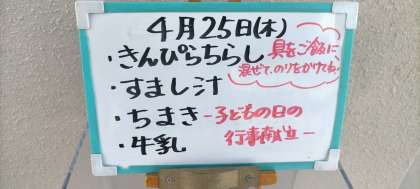 4月25日(木)
・きんぴらちらし 具をご飯に、
混ぜて、のりをかけてね。
・すまし汁
・ちまき -子どもの日の
行事献立-
・牛乳